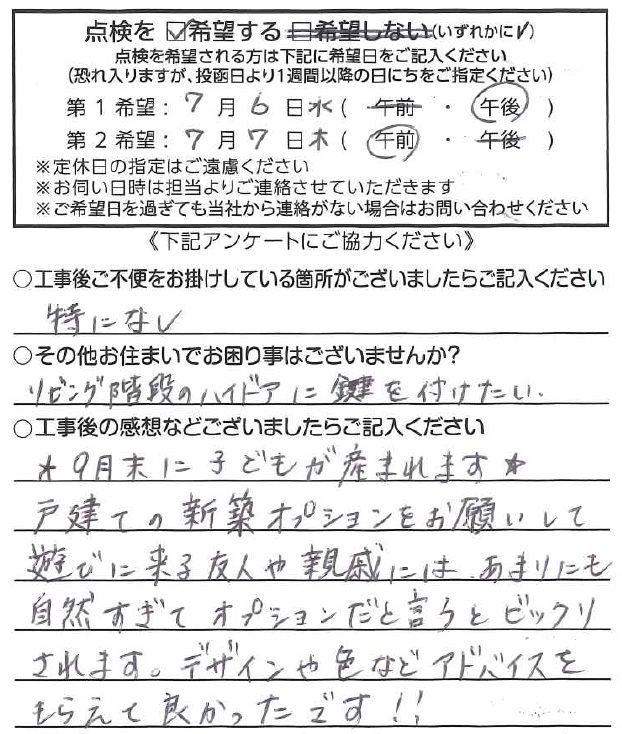 点検を ☑希望する □希望しない(いずれかに✓)
点検を希望される方は下記に希望日をご記入ください
(恐れ入りますが、投函日より1週間以降の日にちをご指定ください)
第1希望: 7 月 6 日 水 ( 午前 ・ 午後 )
第2希望: 7 月 7 日 木 ( 午前 ・ 午後 )
※定休日の指定はご遠慮ください
※お伺い日時は担当よりご連絡させていただきます
※ご希望日を過ぎても当社から連絡がない場合はお問い合わせください
《下記アンケートにご協力ください》
○工事後ご不便をお掛けしている箇所がございましたらご記入ください
特になし
○その他お住まいでお困り事はございませんか?
リビング階段のハイドアに鍵を付けたい.
○工事後の感想などございましたらご記入ください
★9月末に子どもが産まれます★
戸建ての新築オプションをお願いして
遊びに来る友人や親戚には、あまりにも
自然すぎてオプションだと言うとビックリ
されます。デザインや色などアドバイスを
もらえて良かったです!!